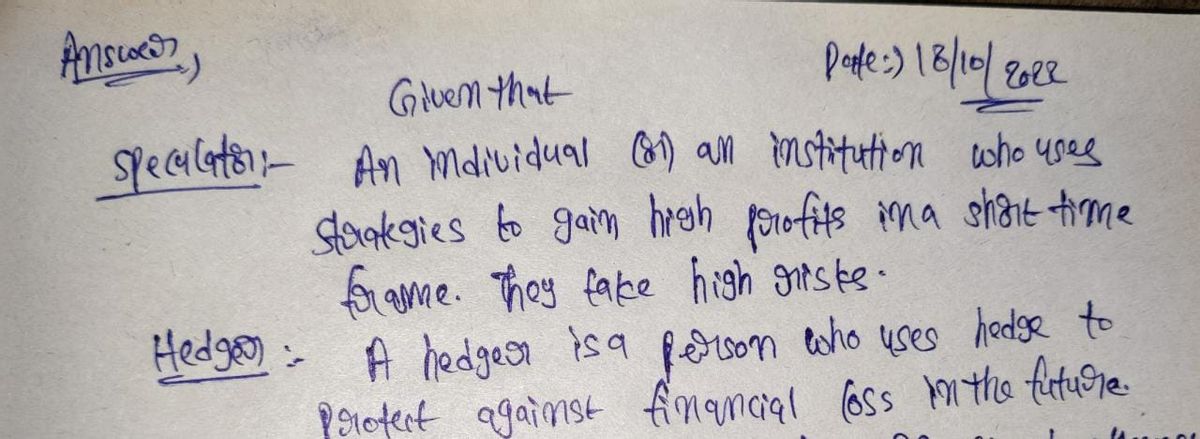 Answer,
Date:) 18/10/2022
Given that
Speculator:- An individual (or) an institution who uses
strategies to gain high profits in a short time
frame. They take high risks.
Hedger :- A hedger is a person who uses hedge to
protect against financial loss in the future.